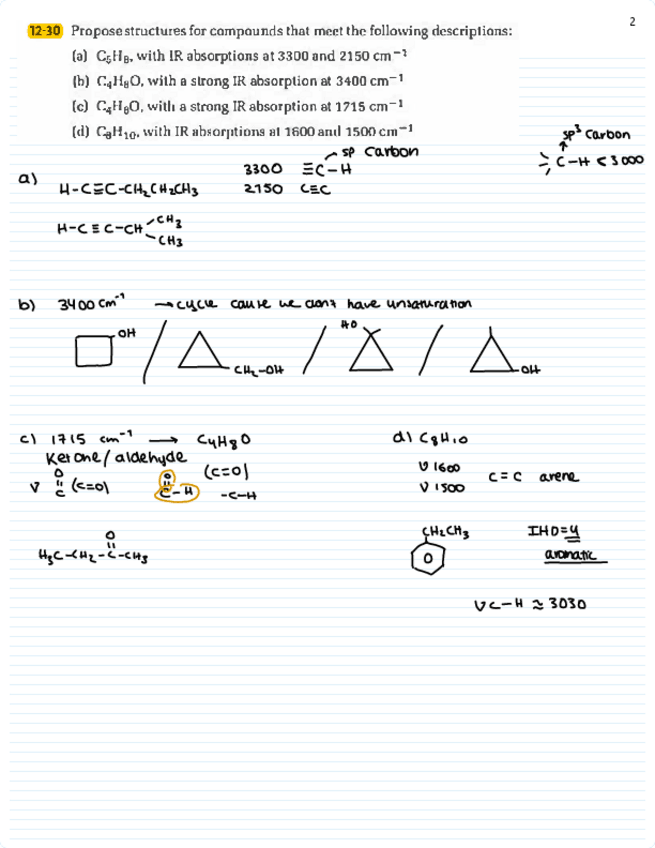 2
12-30 Propose structures for compounds that meet the following descriptions:
(a) C₅H₈, with IR absorptions at 3300 and 2150 cm⁻¹
(b) C₄H₈O, with a strong IR absorption at 3400 cm⁻¹
(c) C₄H₈O, with a strong IR absorption at 1715 cm⁻¹
(d) C₈H₁₀, with IR absorptions at 1600 and 1500 cm⁻¹
sp³ carbon
C-H < 3000
sp carbon
a)
3300 ≡C-H
H-C≡C-CH₂CH₂CH₃ 2150 C≡C
H-C≡C-CH
CH₃
CH₃
b) 3400 cm⁻¹ → cycle cause we don't have unsaturation
OH
CH₂-OH
HO
OH
c) 1715 cm⁻¹ → C₄H₈O
Ketone/aldehyde
(C=O)
O
ν C (C=O)
O
C-H
-C-H
O
H₃C-CH₂-C-CH₃
d) C₈H₁₀
ν 1600
ν 1500
C=C arene
CH₂CH₃
IHD=4
aromatic
ν C-H ≈ 3030